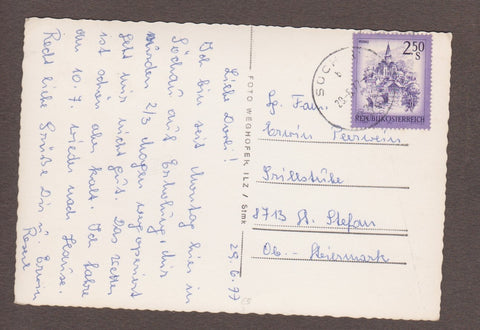 29.6.77
Liebe Dorli!
Ich bin seit Montag hier in
Söchau auf Erholung, da
2/3 Magen wegoperiert
geht mir nicht gut. Das Wetter
ist schön aber kalt. Ich fahre
am 10.7. wieder nach Hause.
Recht liebe Grüße Dir u. Erwin
FOTO WEGHOFER ILZ / Stmk
2.50
S
REPUBLIK ÖSTERREICH
Fam.
Erwin
Grillstube
8713 St. Stefan
Ob. - Steiermark